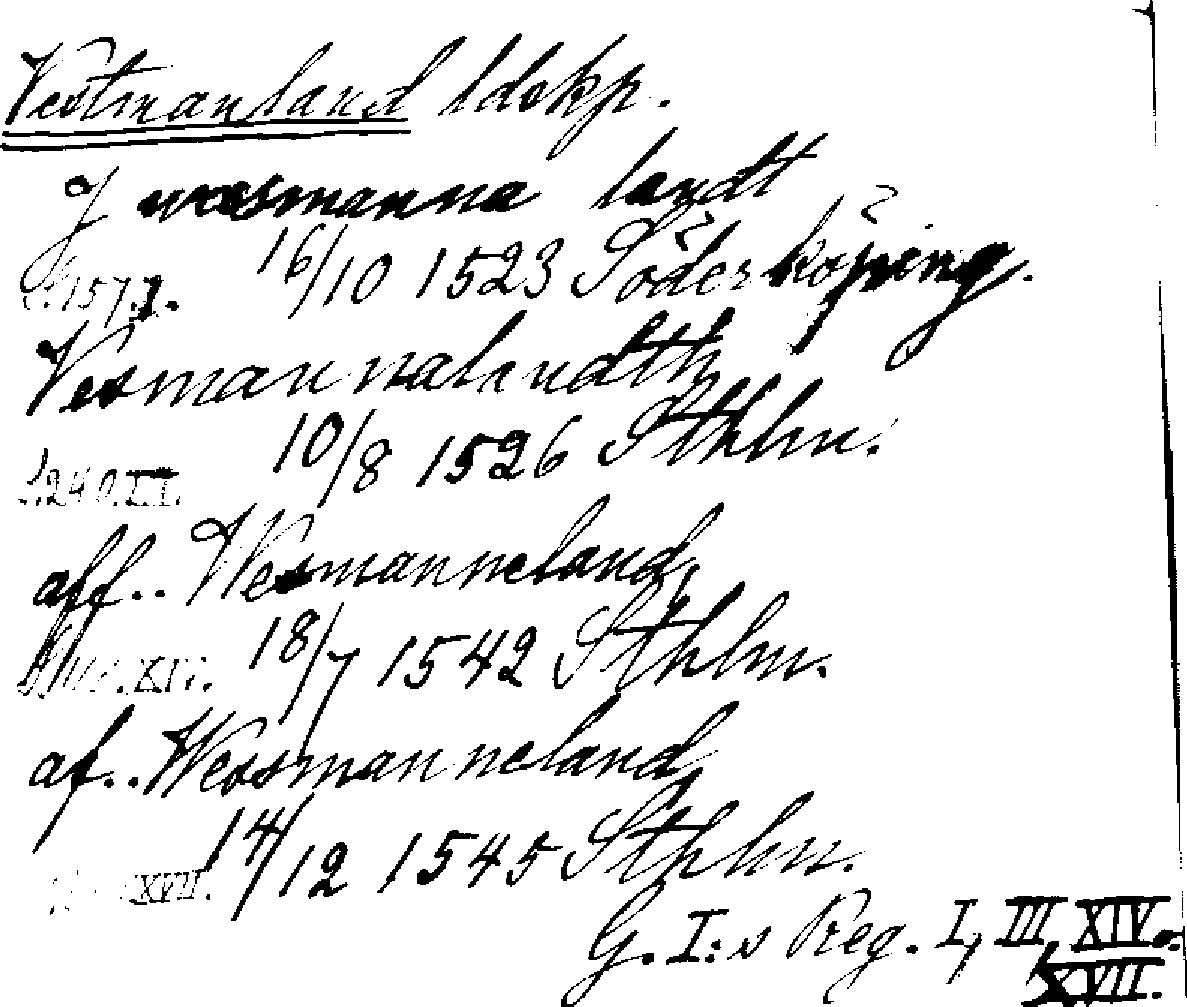 Vestmanland ldskp.
J wesmanna landt
s. 157. I. 16/10 1523 Söderköping.
Vesmannalandth
s. 240. III. 10/8 1526 Sthlm.
aff.. Wesmanneland,
XIV. 18/7 1542 Sthlm.
af.. Wessmanneland,
XVII. 14/12 1545 Sthlm.
G. I:s Reg. I, III, XIV o.
XVII.